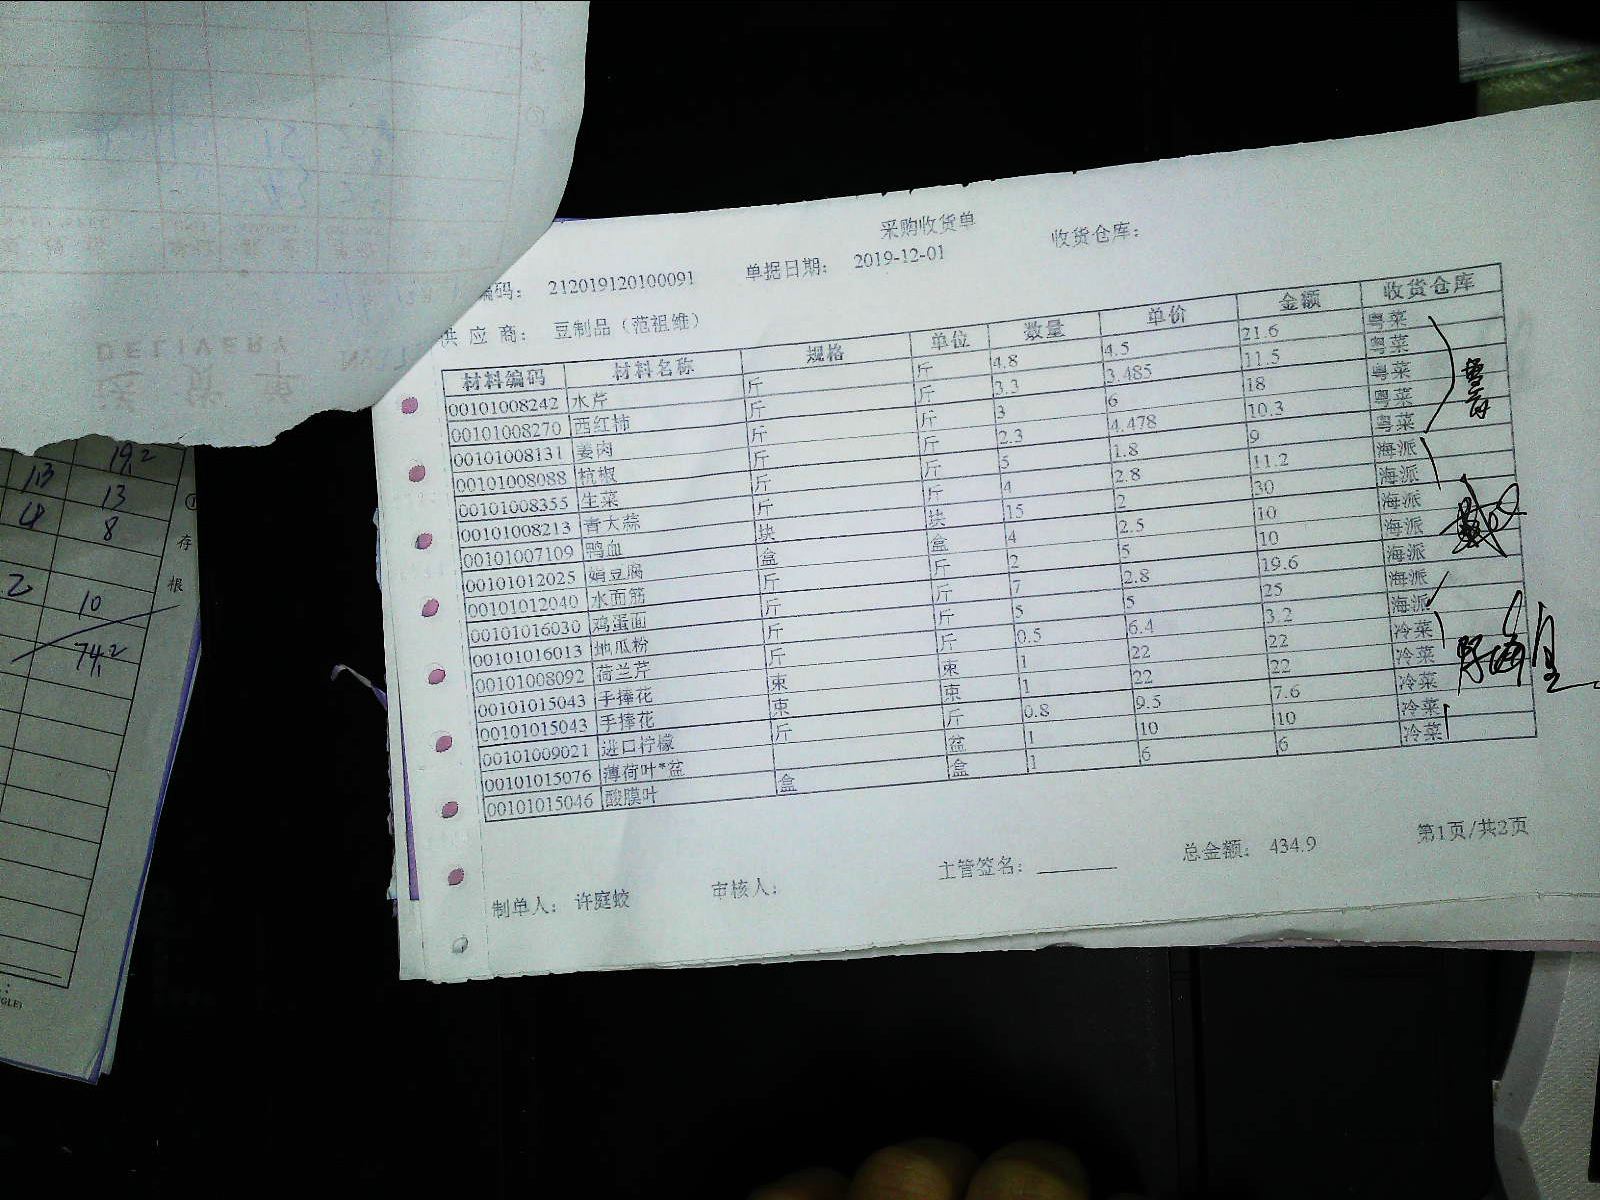 采购收货单
编码: 212019120100091 单据日期: 2019-12-01 收货仓库:
供应商: 豆制品（范祖维）
材料编码 材料名称 规格 单位 数量 单价 金额 收货仓库
00101008242 水芹 斤 斤 4.8 4.5 21.6 粤菜
00101008270 西红柿 斤 斤 3.3 3.485 11.5 粤菜
00101008131 姜肉 斤 斤 3 6 18 粤菜
00101008088 杭椒 斤 斤 2.3 4.478 10.3 粤菜
00101008355 生菜 斤 斤 5 1.8 9 粤菜
00101008213 青大蒜 斤 斤 4 2.8 11.2 海派
00101007109 鸭血 块 块 15 2 30 海派
00101012025 娟豆腐 盒 盒 4 2.5 10 海派
00101012040 水面筋 斤 斤 2 5 10 海派
00101016030 鸡蛋面 斤 斤 7 2.8 19.6 海派
00101016013 地瓜粉 斤 斤 5 5 25 海派
00101008092 荷兰芹 斤 斤 0.5 6.4 3.2 海派
00101015043 手捧花 束 束 1 22 22 冷菜
00101015043 手捧花 束 束 1 22 22 冷菜
00101009021 进口柠檬 斤 斤 0.8 9.5 7.6 冷菜
00101015076 薄荷叶*盆 盆 1 10 10 冷菜
00101015046 酸膜叶 盒 盒 1 6 6 冷菜
制单人: 许庭蛟 审核人: 主管签名: 总金额: 434.9 第1页/共2页
19.2
13 13
4 8
存
根
2 10
74.2